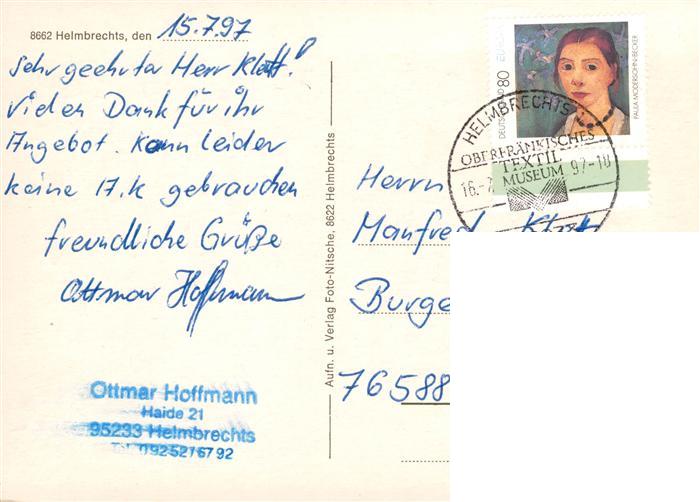 8662 Helmbrechts, den 15.7.97
Sehr geehrter Herr Klett!
Vielen Dank für ihr
Angebot. Kann leider
keine A.K gebrauchen
freundliche Grüße
Ottmar Hoffmann
Ottmar Hoffmann
Haide 21
95233 Helmbrechts
Tel. 09252/6792
Aufn. u. Verlag Foto-Nitsche, 8622 Helmbrechts
DEUTSCHLAND 80 EUROPA
PAULA MODERSOHN-BECKER
HELMBRECHTS 1
OBERFRÄNKISCHES
TEXTIL
MUSEUM
16.-7 97-10
Herrn
Manfred Klett
Burge
76588